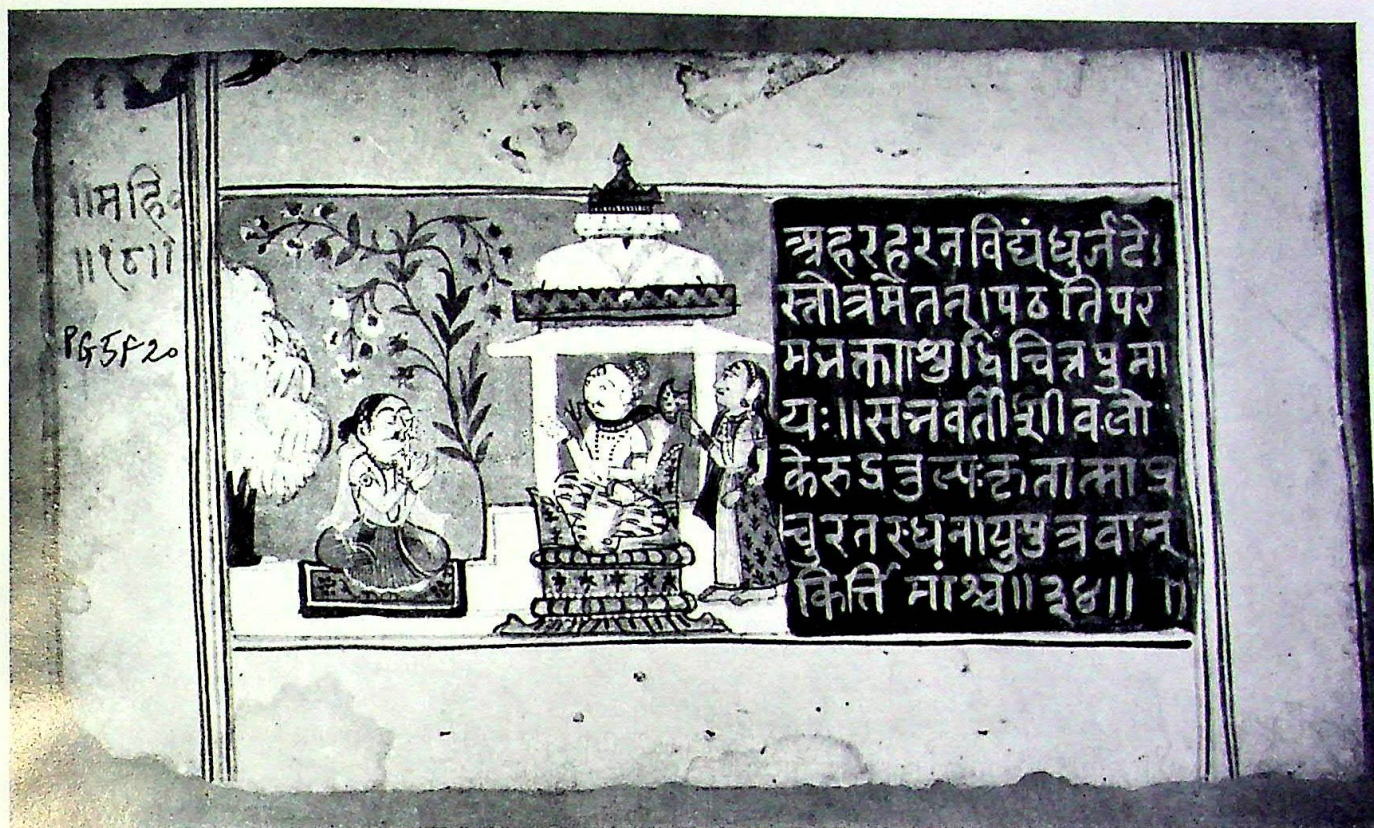 ॥महि॰
॥१८॥
PG5F20
अहरहरनविद्यंधुर्जटे।
स्तोत्रमेतत्।पठतिपर
मभक्त्याशुद्धिचित्तपुमा
यः॥सभवतीशीवलो
केरुऽतुल्पःकृतात्माप्र
चुरतरधनायुपुत्रवान्
कित्तिमांश्च॥३४॥ ॥